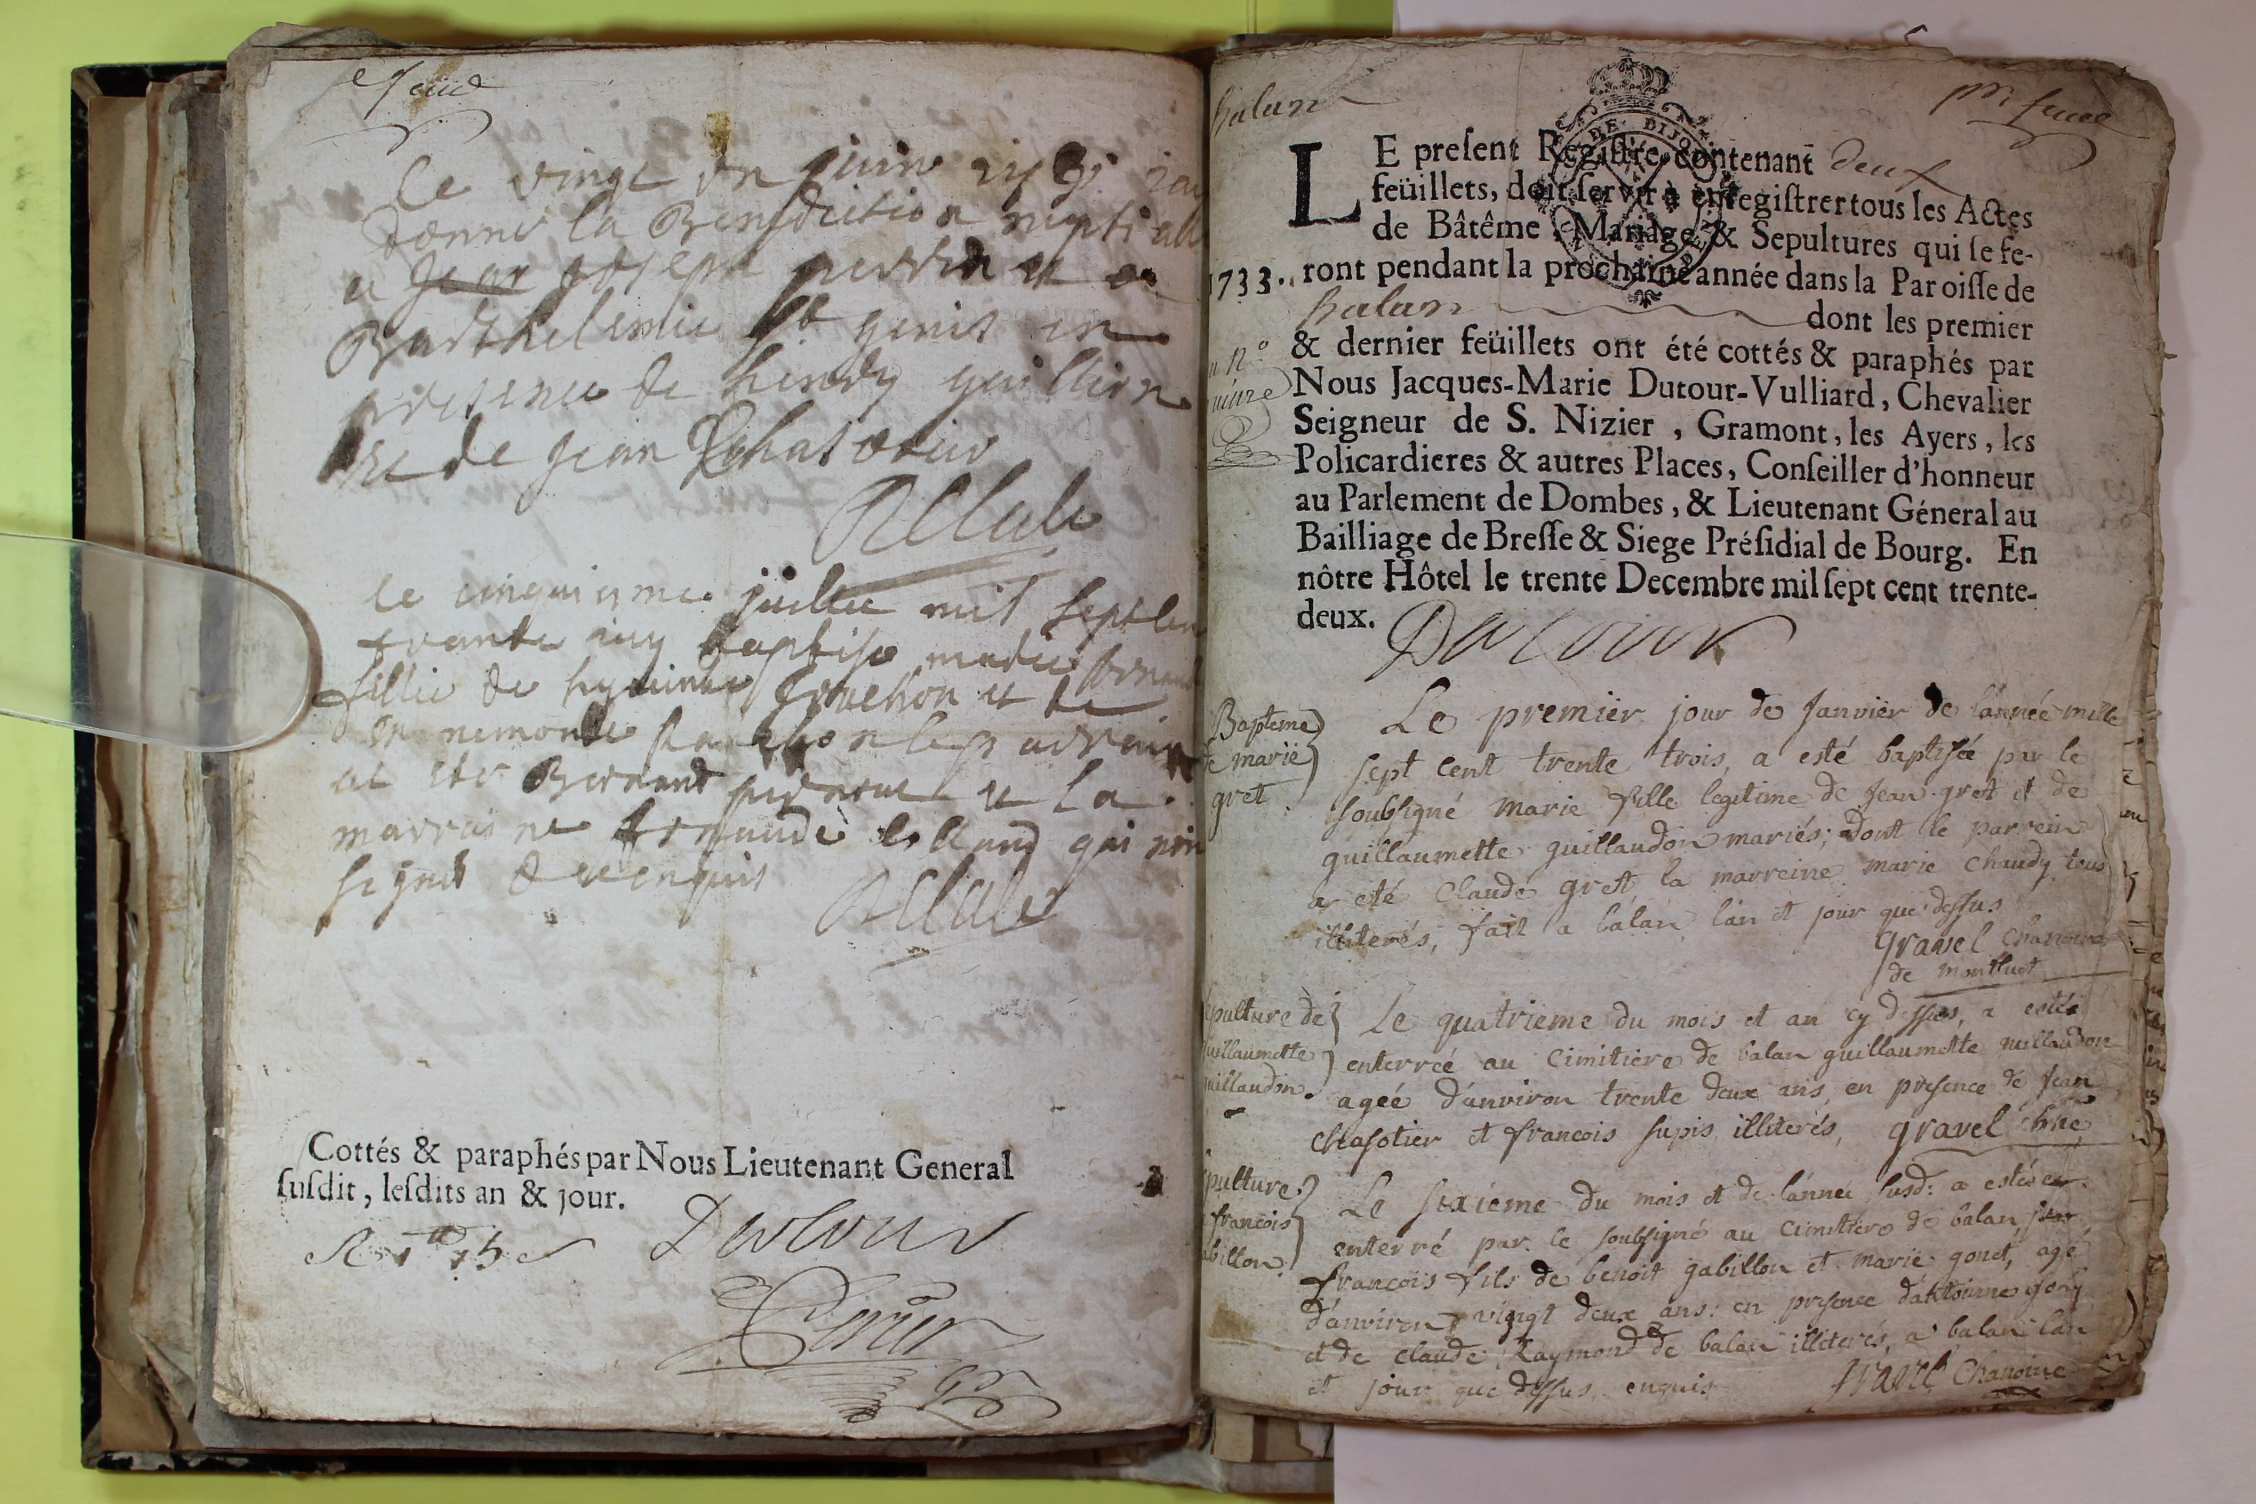 Le vingt un juin
donné la Benediction nuptialle
a Jean Joseph perrin et a
Barthelemie genis en
presence de hendy guillion
et de jean Chasotier
Allale
le cinquieme juillet mil sept cen
trante baptise marie
fillie de fronchon et de
le parrain
at ete Bernard et la
marraine lolland qui non
signes de ce enquis
Allale
Cottés & paraphés par Nous Lieutenant General
susdit, lesdits an & jour.
Dutour
balan
LE present Registre contenant deux
feüillets, doit servir à enregistrer tous les Actes
de Bâtême, Mariage & Sepultures qui se fe-
1733. ront pendant la prochaine année dans la Paroisse de
balan dont les premier
& dernier feüillets ont été cottés & paraphés par
Nous Jacques-Marie Dutour-Vulliard, Chevalier
Seigneur de S. Nizier, Gramont, les Ayers, les
Policardieres & autres Places, Conseiller d'honneur
au Parlement de Dombes, & Lieutenant Géneral au
Bailliage de Bresse & Siege Présidial de Bourg. En
nôtre Hôtel le trente Decembre mil sept cent trente-
deux.
Dutour
Bapteme
de marie
gret.
Le premier jour de Janvier de l'année mille
sept cent trente trois, a esté baptisée par le
soubsigné marie fille legitime de Jean gret et de
guillaumette guillaudon mariés; dont le parrein
a eté Claude gret la marreine marie chaudy tous
illiterés, fait a balan l'an et jour que dessus
gravel chanoine
de montluet
sepulture de
guillaumette
guillaudon.
Le quatrieme du mois et an cy dessus, a estée
enterrée au cimitiere de balan guillaumette guillaudon
agée d'anviron trente deux ans, en presence de Jean
chasotier et francois supis illiterés, gravel chne
sepulture
francois
gabillon.
Le sixieme du mois et de l'année susd: a esté
enterré par le soubsigné au cimitiere de balan
francois fils de benoit gabillon et marie gonet, agé
d'anviron vingt deux ans: en presence d'anthoine
et de claude Raymond de balan illiterés, a balan l'an
et jour que dessus enquis gravel chanoine